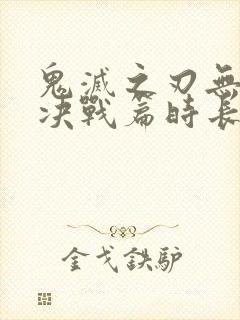 鬼滅之刃無
决戰篇時長
金戈鉄驴